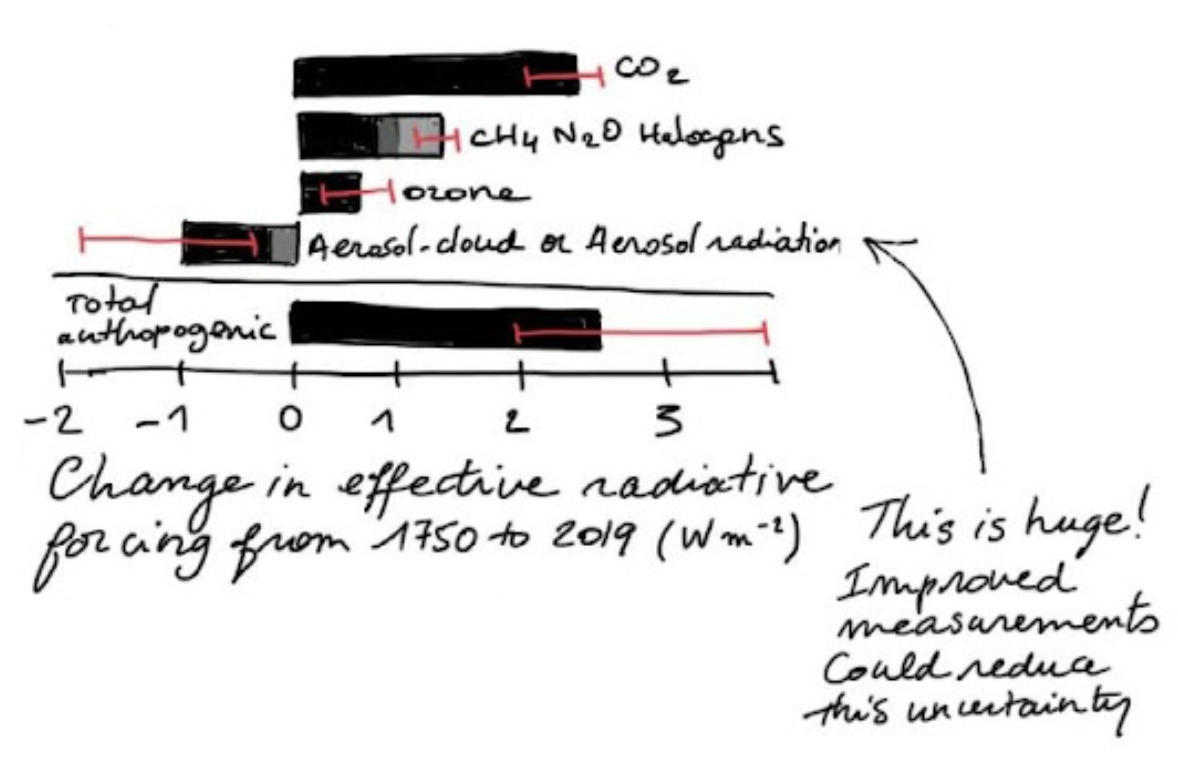 CO₂
CH₄ N₂O Halogens
Ozone
Aerosol-cloud or Aerosol radiation
Total
anthopogenic
-2 -1 0 1 2 3
Change in effective radiative
forcing from 1750 to 2019 (Wm⁻²)
This is huge!
Improved
measurements
Could reduce
this uncertainty